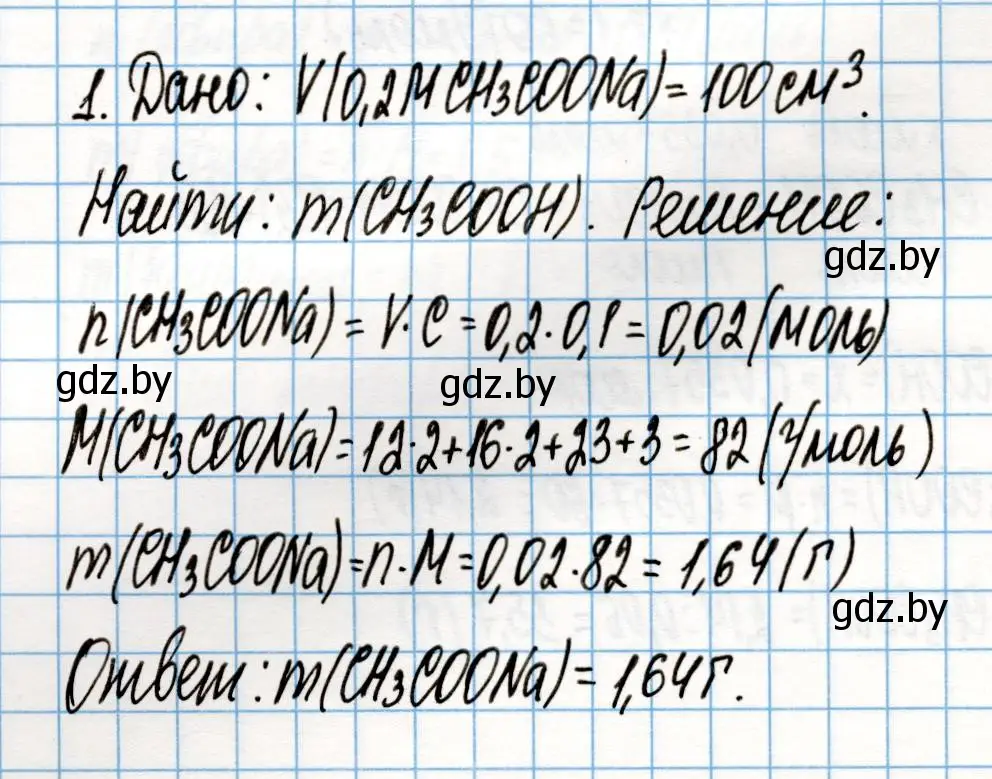 1. Дано: V(0,2M CH3COONa) = 100 см³.
Найти: m(CH3COOH). Решение:
gdz.by
n(CH3COONa) = V·C = 0,2·0,1 = 0,02 (моль)
gdz.by gdz.by
M(CH3COONa) = 12·2+16·2+23+3 = 82 (г/моль)
m(CH3COONa) = n·M = 0,02·82 = 1,64 (г)
gdz.by
Ответ: m(CH3COONa) = 1,64 г.